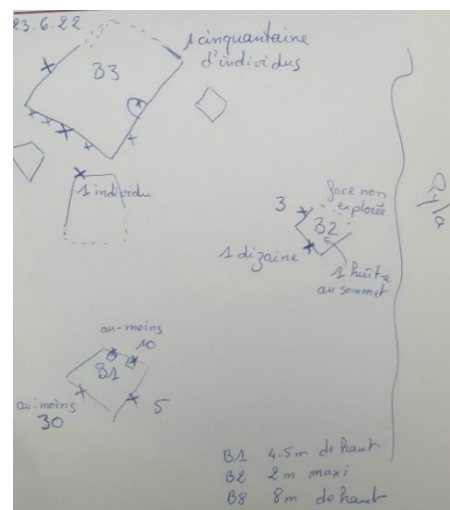 23.6.22
1 cinquantaine
d'individus
B3
1 individu
3
face non
explorée
B2
1 dizaine
1 huître
au sommet
au-moins
10
B1
au-moins
30
5
B1 4-5m de haut
B2 2m maxi
B8 8m de haut